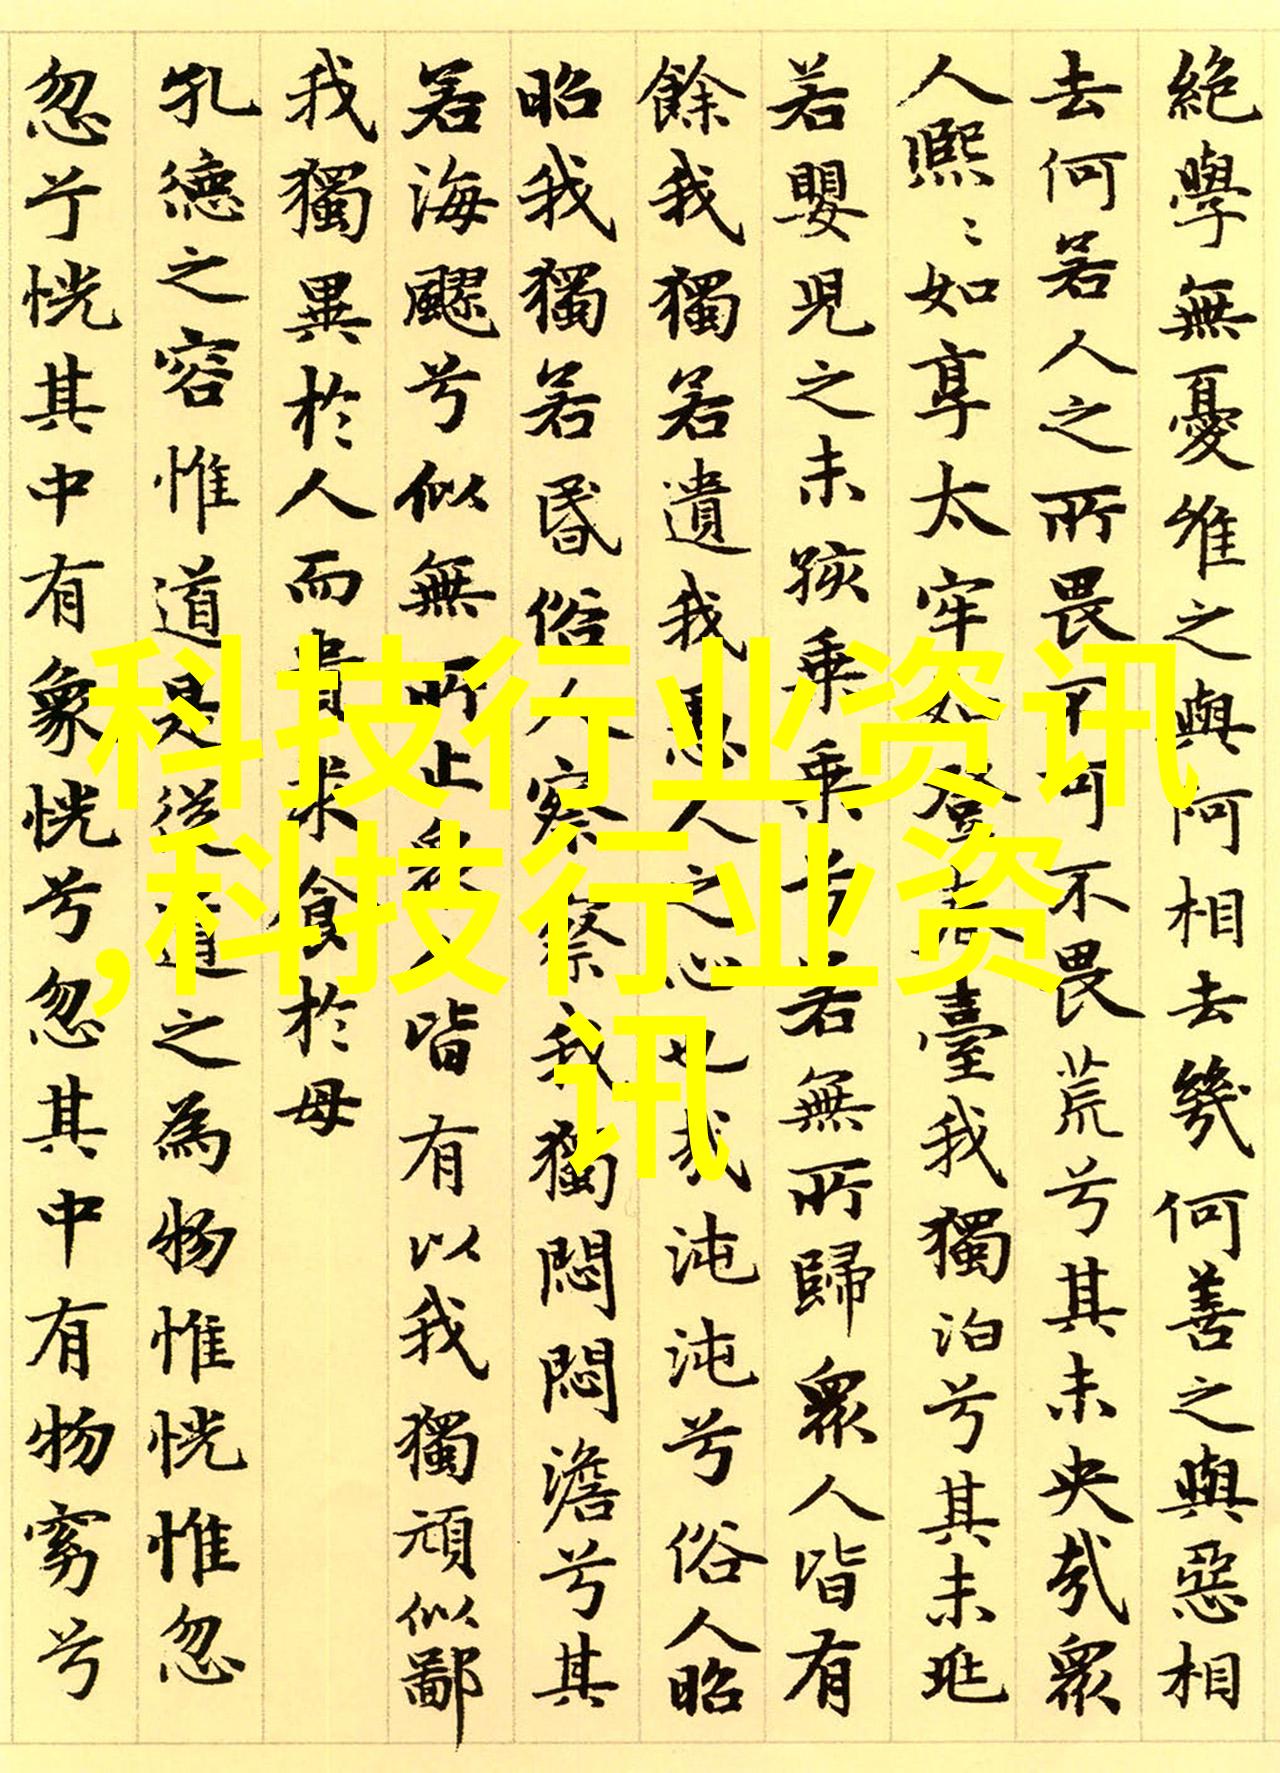 絶學無憂唯之與阿相去幾何善之與惡相
去何若人之所畏不可不畏荒兮其未央哉眾
人熙〻如享太牢如登春臺我獨泊兮其未兆
若嬰兒之未孩乘乘兮若無所歸眾人皆有
餘我獨若遺我愚人之心也哉沌沌兮俗人昭
昭我獨若昏俗人察察我獨悶悶澹兮其
若海飂兮似無所止眾人皆有以我獨頑似鄙
我獨異於人而貴求食於母
孔德之容惟道是從道之為物惟恍惟忽
忽兮恍其中有象恍兮忽其中有物窈兮
科技行业资讯
,科技行业资
讯